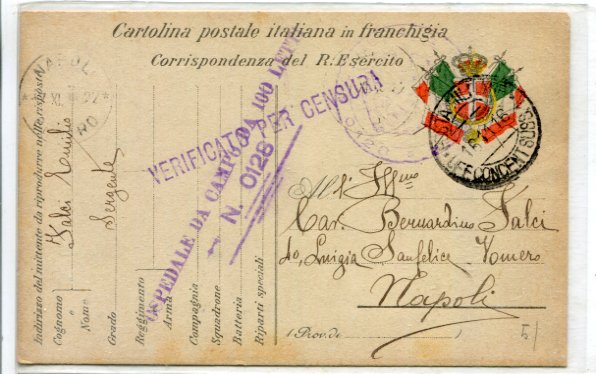 Cartolina postale italiana in franchigia
Corrispondenza del R. Esercito
VERIFICATO PER CENSURA
OSPEDALE DA CAMPO DA 100 LETTI
N. 0128
NAPOLI
POSTA MILITARE
Indirizzo del mittente da riprodurre nelle risposte
Cognome Falci
e
Nome Emilio
Grado Sergente
Reggimento
Arma
Compagnia
Squadrone
Batteria
Riparti speciali
All'Illmo
Cav. Bernardino Falci
40, Luigia Sanfelice Vomero
Napoli
(Prov. di )